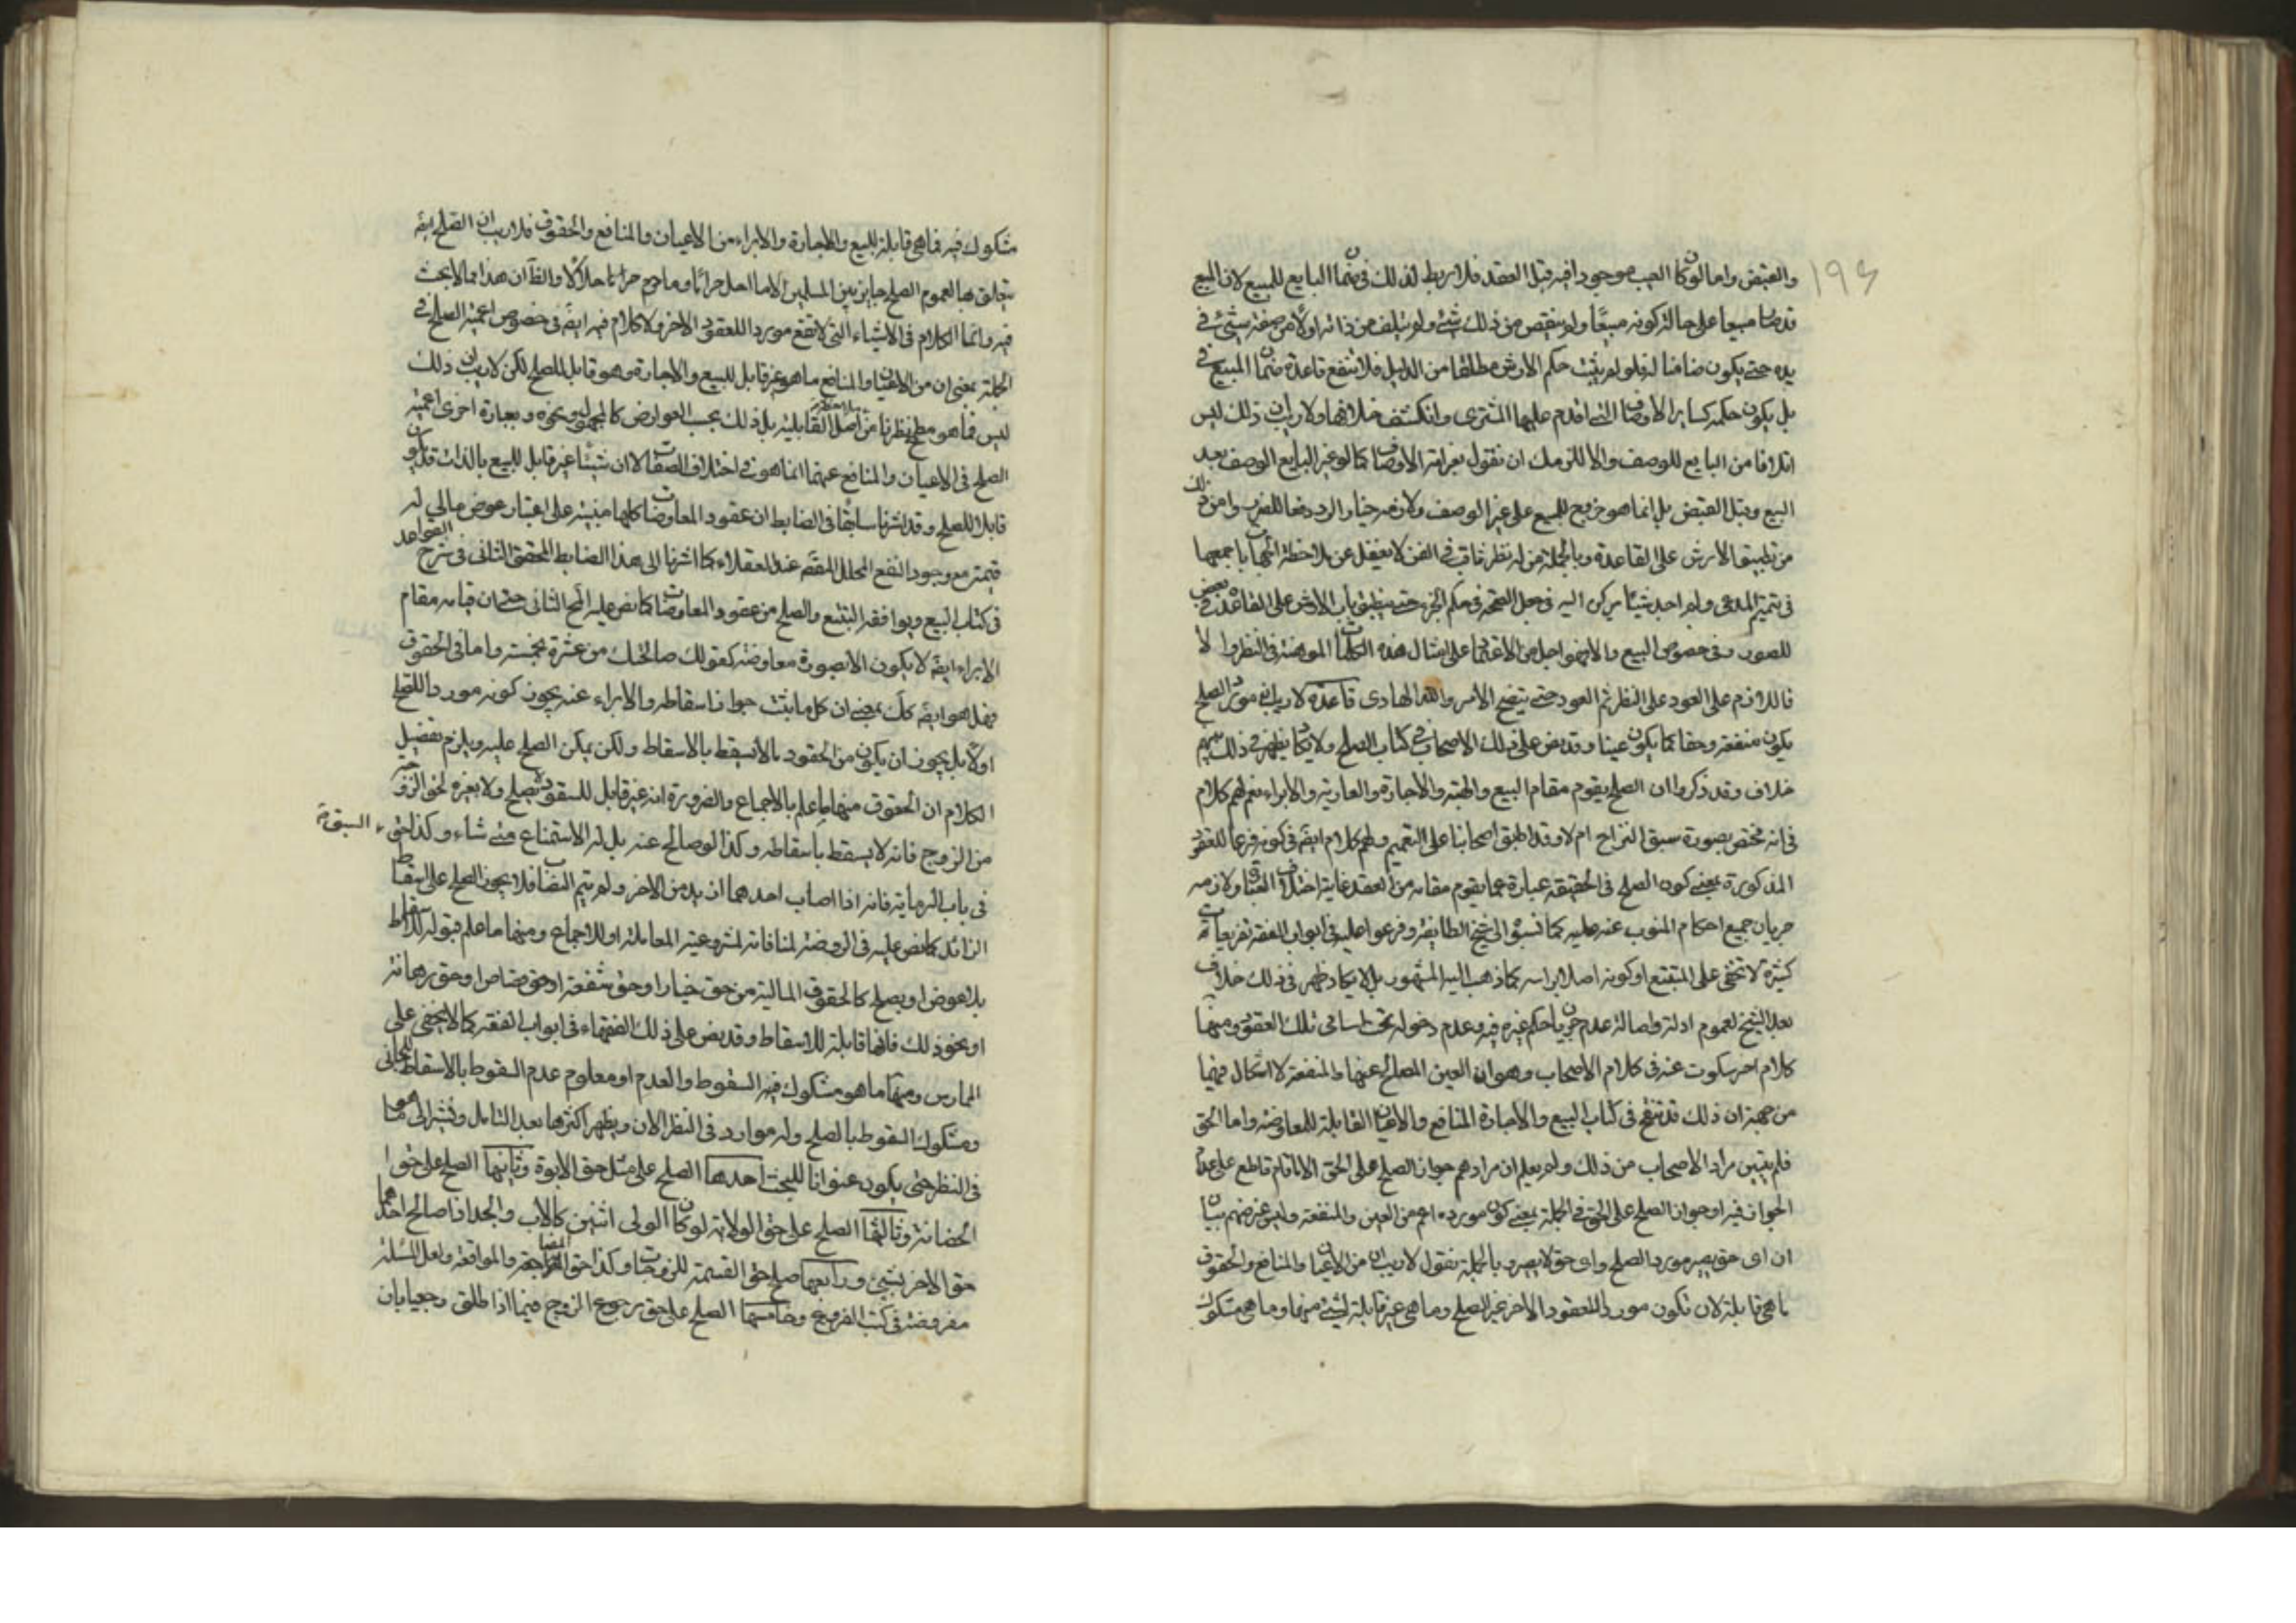 ١٩٤
والقبض واما لو كان العيب موجودا فيه قبل العقد فلا ربط لذلك في ضمان البايع للمبيع لان المبيع
قد صار مبيعا على حالة كونه معيبا ولم ينقص من ذلك شئ ولم يتلف من ذاته اولا من صفته شئ في
يده حتى يكون ضامنا له فلو لم يثبت حكم الارش مطلقا من الدليل فلا تنفع قاعدة ضمان المبيع في
بل يكون حكمه كساير الاوصاف التي اقدم عليها المشترى وانكشف خلافها ولا ريب ان ذلك ليس
اتلافا من البايع للوصف والا للزمك ان تقول بغرامة الاوصاف كما لو غير البايع الوصف بعد
البيع وقبل القبض بل انما هو خروج للبيع على غير الوصف ولازمه خيار الرد دفعا للضرر واين ذلك
من تطبيق الارش على القاعدة وبالجملة من له نظر ثاقب في الفن لا يغفل عن ملاحظة الجهات باجمعها
في تتميم المدعى ولم اجد شيئا يركن اليه في جعل الصحة في حكم الجزء حتى ينطبق باب الارش على القاعدة في بعض
الصور وفي خصوص البيع والانهو اجل من الاعتماد على امثال هذه الكلمات الموهنة في النظر والا
فاللازم على العود على النظر ثم العود حتى يتضح الامر والله الهادى قاعدة لا ريب ان مورد الصلح
يكون منفعة وحقا كما يكون عينا وقد نص على ذلك الاصحاب في كتاب الصلح ولا يكاد يظهر في ذلك بينهم
خلاف وقد ذكروا ان الصلح يقوم مقام البيع والهبة والاجارة والعارية والابراء نعم لهم كلام
في انه مختص بصورة سبق النزاع ام لا وقد اطبق اصحابنا على التعميم ولهم كلام ايضً في كونه فرعا للعقود
المذكورة بمعنى كون الصلح في الحقيقة عبارة عما يقوم مقامه من العقد غاية اختلاف العبارة ولازمه
جريان جميع احكام المنوب عنه عليه كما نسبوا الى شيخ الطايفة وفرعوا عليه في ابواب الفقه تفريعات
كثيرة لا تخفى على المتتبع او كونه اصلا براسه كما ذهب اليه المشهور بل لا يكاد يظهر في ذلك خلاف
بعد الشيخ لعموم ادلته واصالة عدم جريان احكام غيره فيه وعدم دخوله تحت اسامى تلك العقود ومنها
كلام اخر سكوت عنه في كلام الاصحاب وهو ان العين المصالح عنها والمنفعة لا اشكال فيهما
من جهة ان ذلك قد تنقح في كتاب البيع والاجارة المنافع والاعيان القابلة للمعاوضة واما الحق
فلم يتبين مراد الاصحاب من ذلك ولم يعلم ان مرادهم جواز الصلح على الحق الا ما قام قاطع على عدم
الجواز فيه او جواز الصلح على الحق في الجملة بمعنى كون مورده اعم من العين والمنفعة وليس غرضهم بيان
ان اى حق يصير مورد الصلح واى حق لا يصير وبالجملة نقول لا ريب ان من الاعيان والمنافع والحقوق
ما هي قابلة لان تكون موردا للعقود الاخر غير الصلح وما هي غير قابلة لشئ منها وما هي مشكوك
مشكوك فيه فما هي قابلة للبيع والاجارة والابراء من الاعيان والمنافع والحقوق فلا ريب ان الصلح ايضً
يتعلق بها لعموم الصلح جايز بين المسلمين الا ما احل حراما وما حرم حلالا والظاهر ان هذا مما لا بحث
فيه وانما الكلام في الاشياء التي لا تقع موردا للعقود الاخر ولا كلام فيه ايضً في خصوص اعمية الصلح في
الجملة بمعنى ان من الاعيان والمنافع ما هو غير قابل للبيع والاجارة وهو قابل للصلح لكن لا ريب ان ذلك
ليس فيما هو مطمح نظرنا من اصل القابلية بل ذلك بحسب العوارض كالمجهول ونحوه وبعبارة اخرى اعمية
الصلح في الاعيان والمنافع عنهما انما هو في اختلاف الصفات لا ان شيئا غير قابل للبيع بالذات قد يكون
قابلا للصلح وقد اشرنا سابقا في الضابط ان عقود المعاوضات كلها مبنية على اعتبار عوض مالي له
قيمة مع وجود النفع المحلل المقصد عند العقلاء كما اشرنا الى هذا الضابط المحقق الثانى في شرح القواعد
في كتاب البيع ويوافقه التتبع والصلح من عقود المعاوضات كما نص عليه المحقق الثانى حتى ان قيامه مقام
الابراء ايضً لا يكون الا بصورة معاوضة كقولك صالحتك من عشرة بخمسة واما في الحقوق
فهل هو ايضً كك بمعنى ان كل ما يثبت جواز اسقاطه والابراء عنه يجوز كونه موردا للصلح
او لا بل يجوز ان يكون من الحقوق ما لا يسقط بالاسقاط ولكن يمكن الصلح عليه ويلزم تفصيل
الكلام ان الحقوق منها ما علم بالاجماع والضرورة انه غير قابل للسقوط لا بصلح ولا بغيره لحق الزوجية
من الزوج فانه لا يسقط باسقاطه وكذا لو صالح عنه بل له الاستمتاع متى شاء وكذا حق السبق
في باب الرماية فانه اذا اصاب احدهما ازيد من الاخر ولم يتم النصاب فلا يجوز الصلح على اسقاط
الزائد كما نص عليه في الروضة لمنافاته لمشروعية المعاملة او للاجماع ومنها ما علم قبوله للاسقاط
بلا عوض او بصلح كالحقوق المالية من حق خيار او حق شفعة او حق قصاص او حق رهانة
او نحو ذلك فانها قابلة للاسقاط وقد نص على ذلك الفقهاء في ابواب الفقه كما لا يخفى على
الممارس ومنها ما هو مشكوك فيه السقوط والعدم او معلوم عدم السقوط بالاسقاط المجانى
ومشكوك السقوط بالصلح وله موارد في النظر الان ويظهر اكثرها بعد التامل ونشير الى ما هو
في النظر حتى يكون عنوانا للبحث احدها الصلح على مثل حق الابوة وثانيها الصلح على حق
الحضانة وثالثها الصلح على حق الولاية لو كان الولى اثنين كالاب والجد اذا صالح احدهما
حق الاخر بشئ ورابعها صلح حق القسمة للزوجات وكذا حق المضاجعة والمواقعة ولعل المسئلة
مفروضة في كتب الفروع وخامسها الصلح على حق رجوع الزوج فيما اذا طلق رجعيا بان